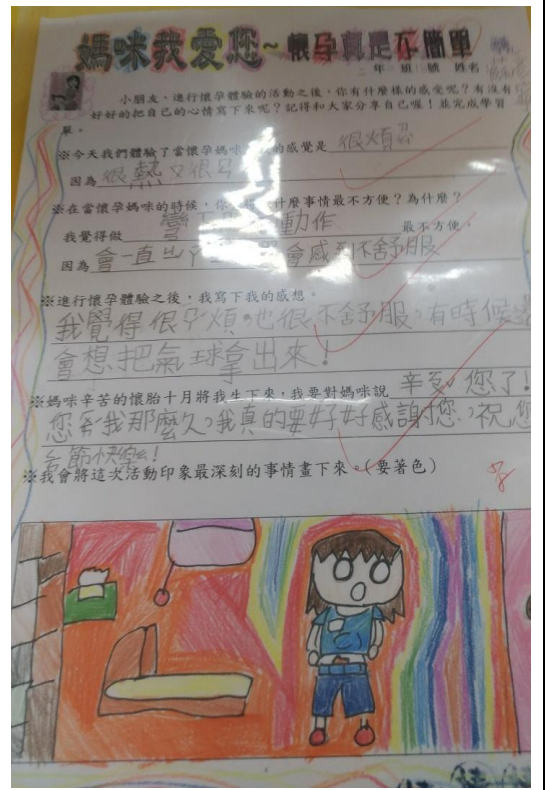 媽咪我愛您~懷孕真是不簡單
年 班 號 姓名
小朋友,進行懷孕體驗的活動之後,你有什麼樣的感受呢?有沒有
好好的把自己的心情寫下來呢?記得和大家分享自己喔!並完成學習
單。
※今天我們體驗了當懷孕媽咪 的感覺是 很煩
因為 很熱又很
※在當懷孕媽咪的時候,你 什麼事情最不方便?為什麼?
我覺得做 彎 動作 最不方便,
因為 會一直 會感到不舒服
※進行懷孕體驗之後,我寫下我的感想。
我覺得很 煩。也很不舍予服。有時候還
會想把氣球拿出來!
※媽咪辛苦的懷胎十月將我生下來,我要對媽咪說 辛 您了!
您 我那麼久,我真的要好好感謝您,祝您
節快樂!
※我會將這次活動印象最深刻的事情畫下來。(要著色)